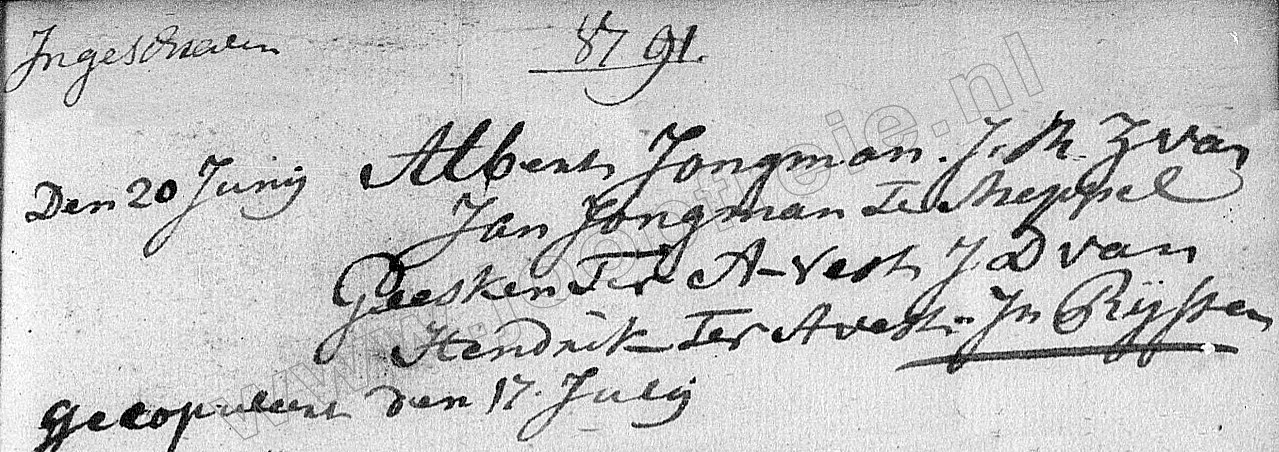 Ingeschreven 1791.
Den 20 Junij Albert Jongman. J. M. Z van
Jan Jongman Te Meppel
Geesken Ter Avest J. D van
Hendrik Ter Avest. In Rijssen
gecopuleert den 17. Julij